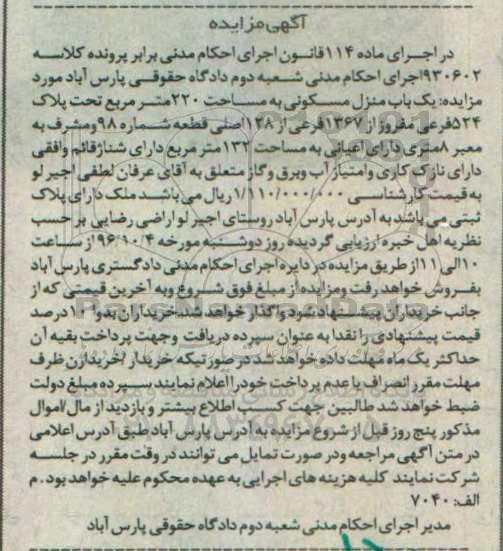 آگهی مزایده
در اجرای ماده ۱۱۴ قانون اجرای احکام مدنی برابر پرونده کلاسه
۹۳۰۶۰۲ اجرای احکام مدنی شعبه دوم دادگاه حقوقی پارس آباد مورد
مزایده: یک باب منزل مسکونی به مساحت ۲۲۰ متر مربع تحت پلاک
۵۲۴ فرعی مفروز از ۱۳۶۷ فرعی از ۱۲۸ اصلی قطعه شماره ۹۸ ومشرف به
معبر ۸ متری دارای اعیانی به مساحت ۱۳۲ متر مربع دارای شناژ قائم وافقی
دارای نازک کاری وامتیاز آب وبرق وگاز متعلق به آقای عرفان لطفی اجیر لو
به قیمت کارشناسی ۱/۱۱۰/۰۰۰/۰۰۰ ریال می باشد ملک دارای پلاک
ثبتی می باشد به آدرس پارس آباد روستای اجیر لو اراضی رضایی بر حسب
نظریه اهل خبره ارزیابی گردیده روز دوشنبه مورخه ۹۶/۱۰/۴ از ساعت
۱۰ الی ۱۱ از طریق مزایده در دایره اجرای احکام مدنی دادگستری پارس آباد
بفروش خواهد رفت ومزایده از مبلغ فوق شروع وبه آخرین قیمتی که از
جانب خریداران پیشنهاد شود واگذار خواهد شد. خریداران بدوا ۱۰ درصد
قیمت پیشنهادی را نقدا به عنوان سپرده دریافت وجهت پرداخت بقیه آن
حداکثر یک ماه مهلت داده خواهد شد در صورتیکه خریدار /خریدارن ظرف
مهلت مقرر انصراف یا عدم پرداخت خود را اعلام نمایند سپرده مبلغ دولت
ضبط خواهد شد طالبین جهت کسب اطلاع بیشتر و بازدید از مال/اموال
مذکور پنج روز قبل از شروع مزایده به آدرس پارس آباد طبق آدرس اعلامی
در متن آگهی مراجعه ودر صورت تمایل می توانند در وقت مقرر در جلسه
شرکت نمایند کلیه هزینه های اجرایی به عهده محکوم علیه خواهد بود. م
الف: ۷۰۴۰
مدیر اجرای احکام مدنی شعبه دوم دادگاه حقوقی پارس آباد